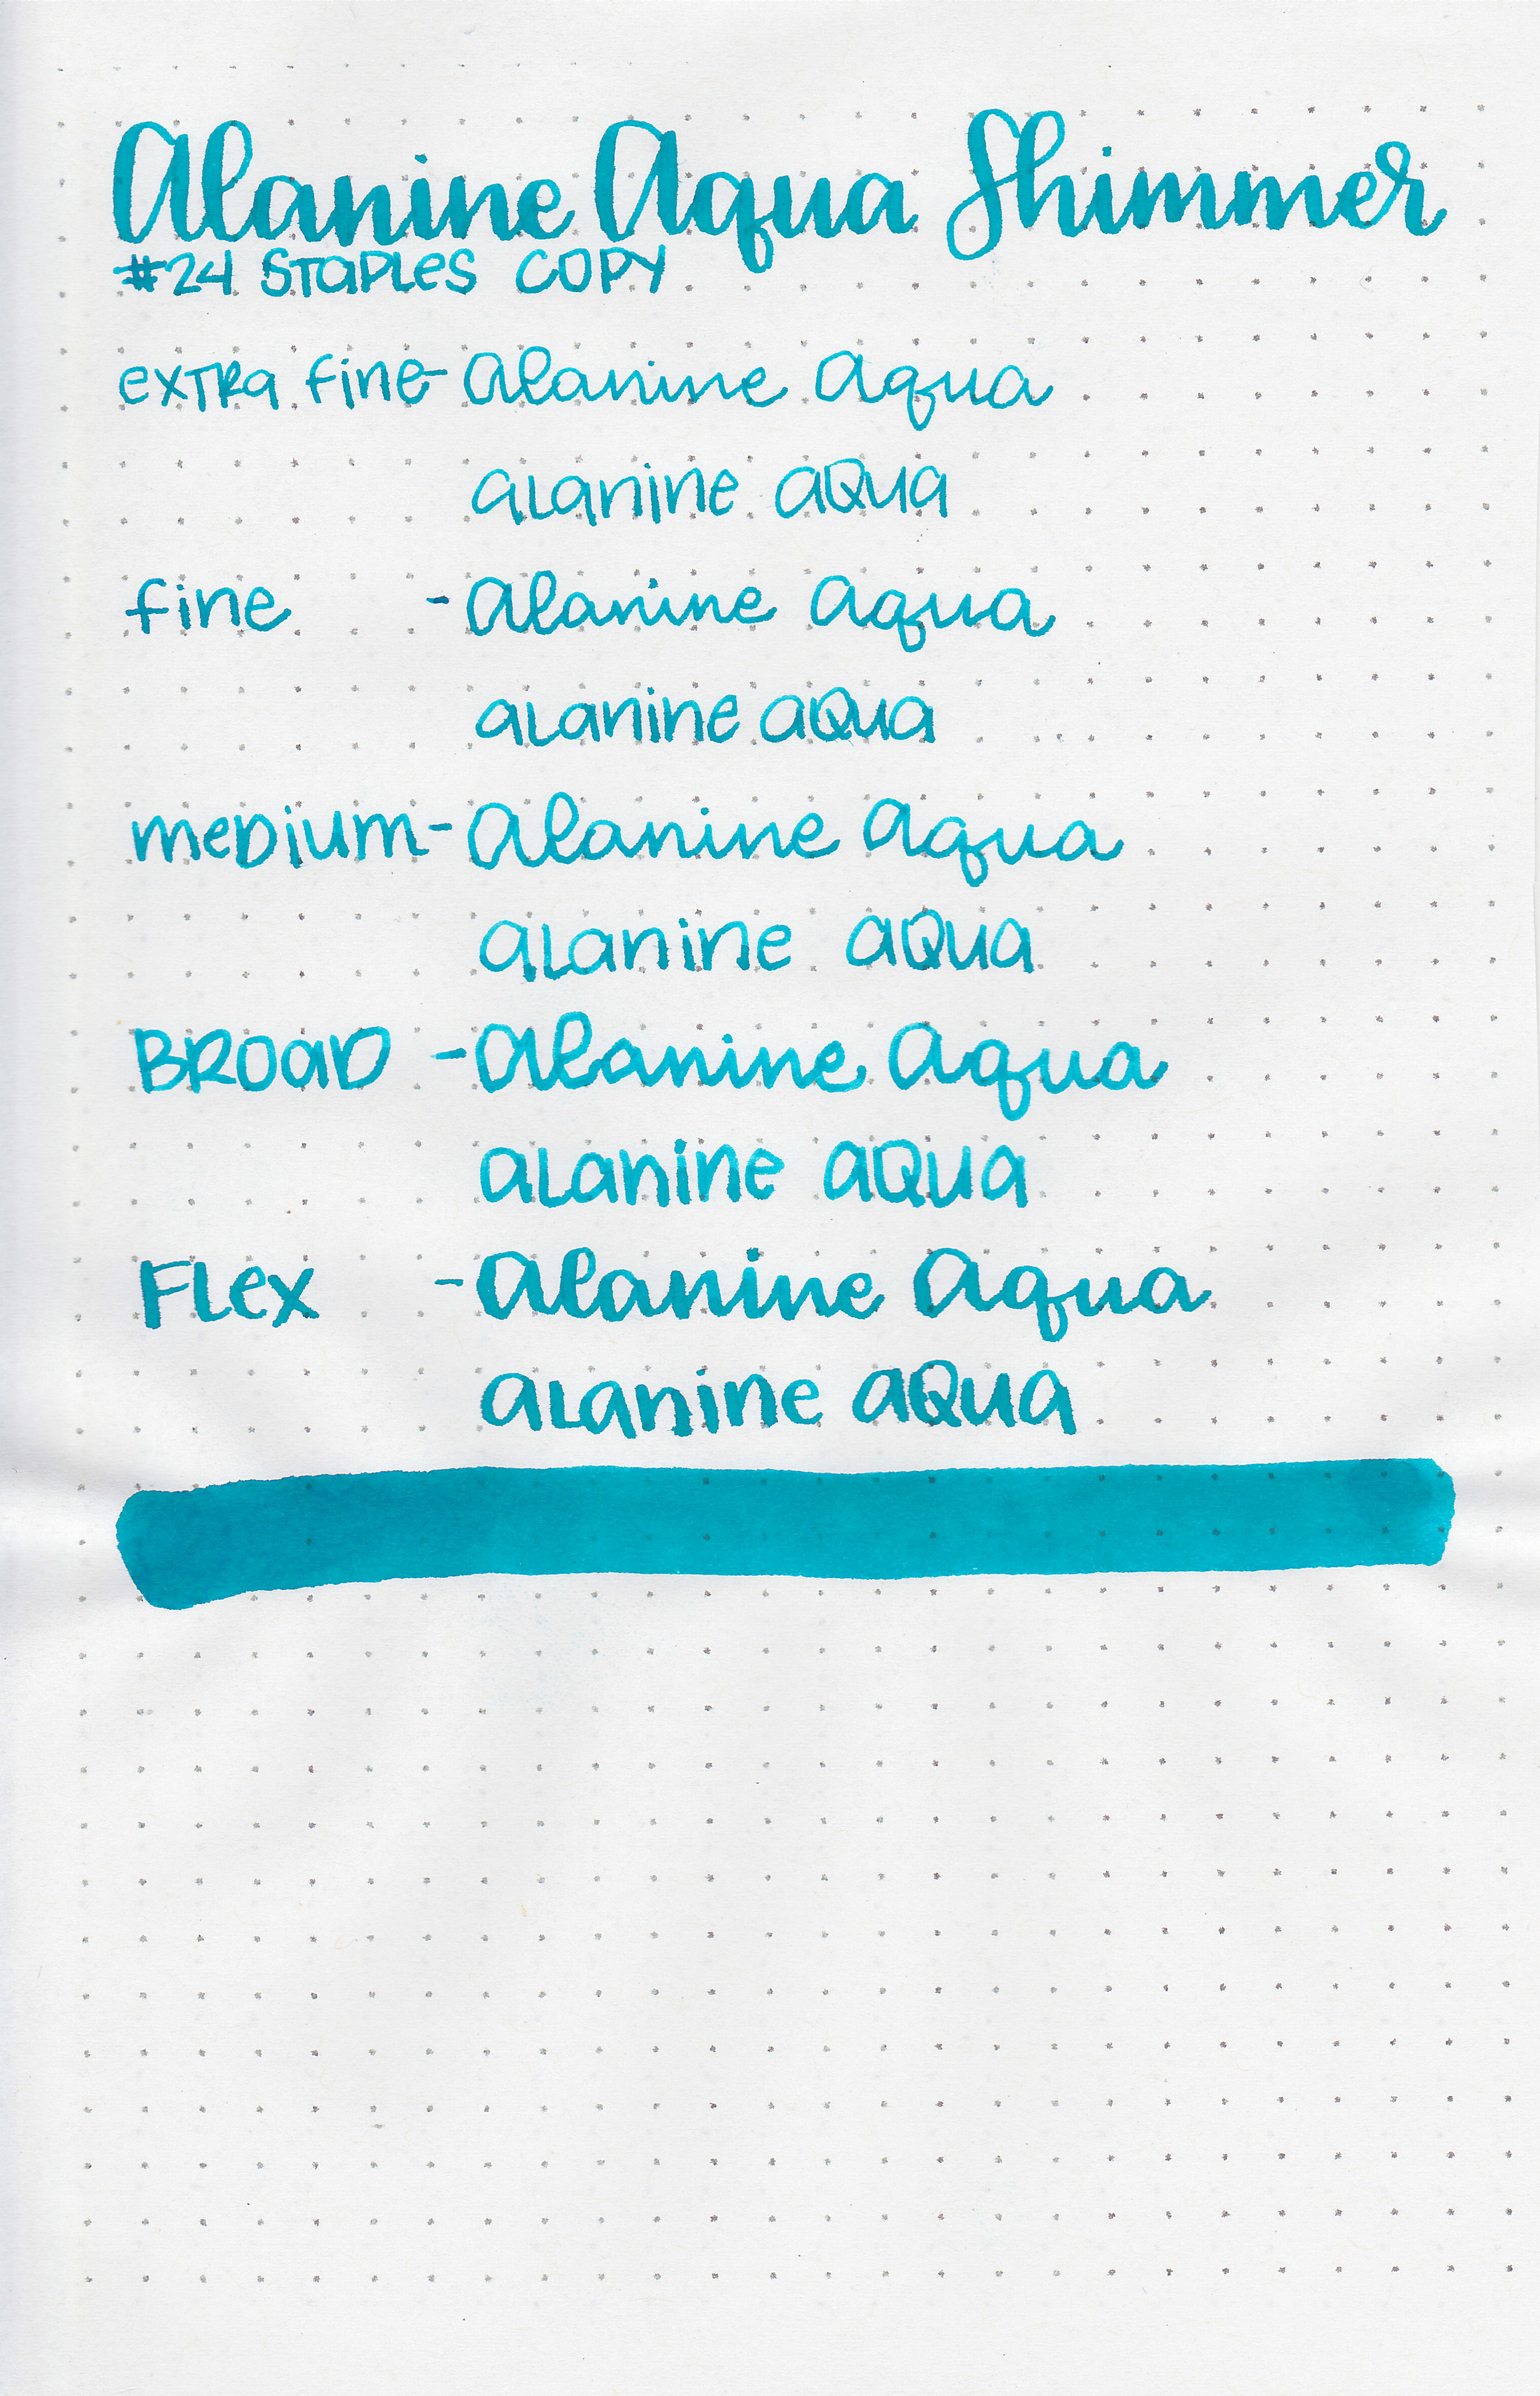 Alanine Aqua Shimmer
#24 STAPLES COPY
exTRa fine - Alanine Aqua
alanine aqua
fine - Alanine Aqua
alanine aqua
meDium - Alanine Aqua
alanine aqua
BROAD - Alanine Aqua
alanine aqua
FLex - Alanine Aqua
alanine aqua